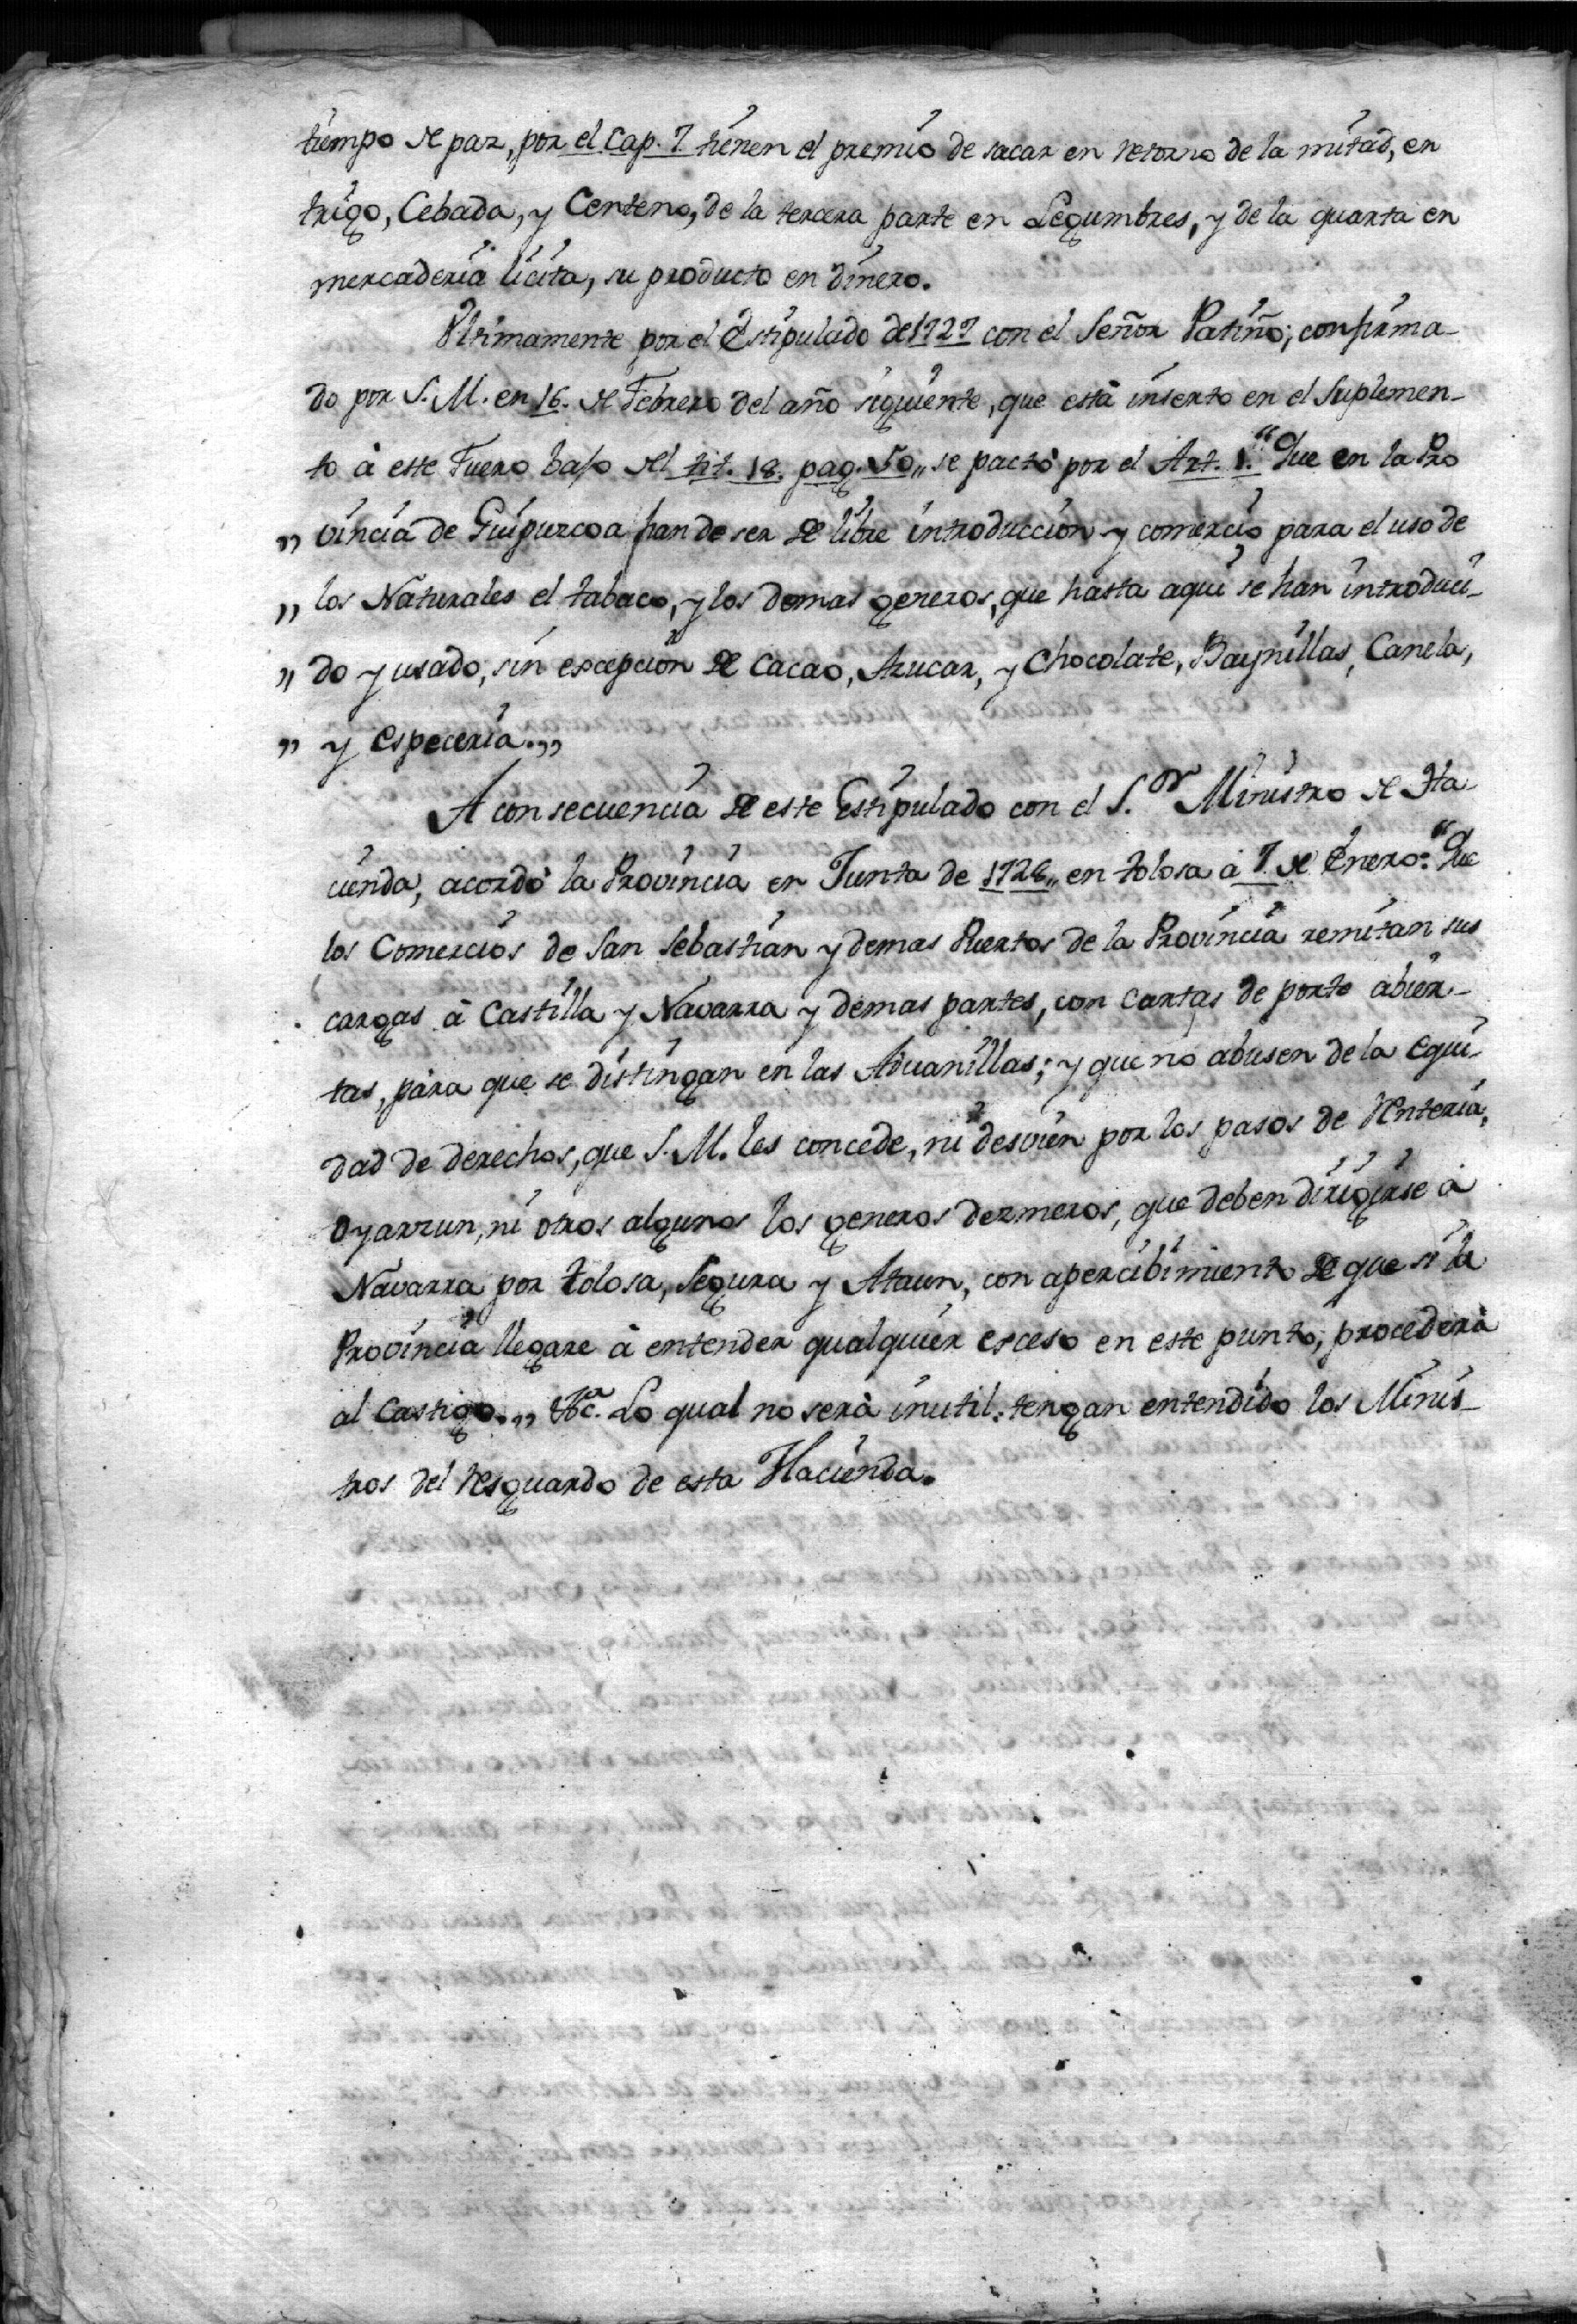 tiempo de paz, por el Cap. 7 tienen el premio de sacar en retorno de la mitad, en
trigo, Cebada, y Centeno, de la tercera parte en Legumbres, y de la quarta en
mercadería licita, su producto en dinero.
Ultimamente por el Estipulado de 1727 con el Señor Patiño; confirma-
do por S. M. en 16. de Febrero del año siguiente, que está inserto en el Suplemen-
to à este Fuero bajo del tit. 18. pag. 50,, se pactó por el Art. 1. “Que en la Pro
„ vincia de Guipuzcoa han de ser de libre introduccion y comercio para el uso de
„ los Naturales el tabaco, y los demas generos, que hasta aqui se han introduci-
„ do y usado, sin excepcion de Cacao, Azucar, y Chocolate, Baynillas, Canela,
„ y Especeria.„
A consecuencia de este Estipulado con el S.or Ministro de Ha
cienda, acordó la Provincia en Junta de 1728,, en Tolosa à 7. de Enero: “Que
los Comercios de San Sebastian y demas Puertos de la Provincia remitan sus
cargas à Castilla y Navarra y demas partes, con cartas de porte abier-
tas, para que se distingan en las Aduanillas; y que no abusen de la equi-
dad de derechos, que S. M. les concede, ni desvien por los pasos de Renteria,
Oyarzun, ni otros algunos los generos dezmeros, que deben dirigirse à
Navarra por Tolosa, Segura y Ataun, con apercibimiento de que si la
Provincia llegare à entender qualquier exceso en este punto, procederà
al Castigo.„ &c.a Lo qual no serà inutil: tengan entendido los Minis-
tros del resguardo de esta Hacienda.